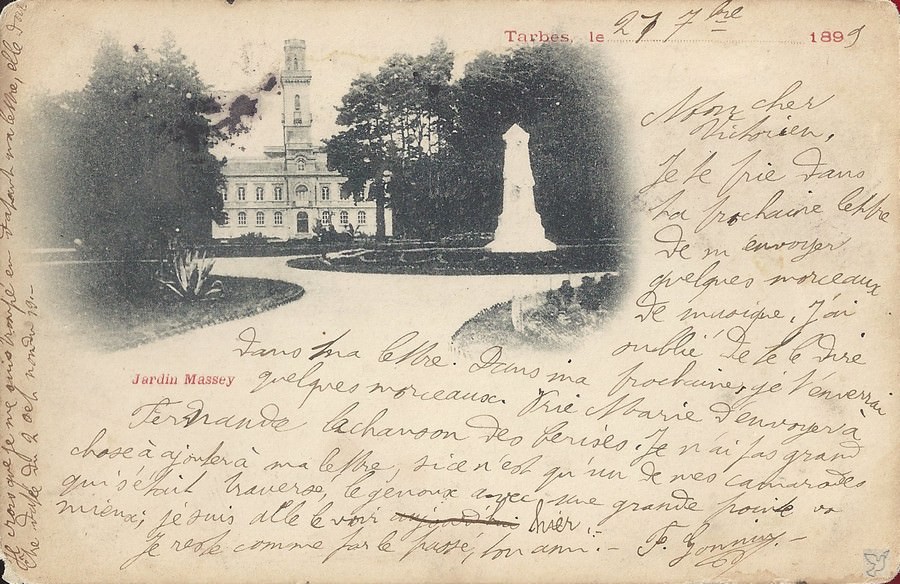 Tarbes, le 27 7bre 1899
Mon cher
Victorien,
Je te prie dans
ta prochaine lettre
de m'envoyer
quelques morceaux
de musique. J'ai
oublié de te le dire
dans ma lettre. Dans ma prochaine, je t'enverrai
quelques morceaux. Prie Marie d'envoyer à
Fernande la chanson des Cerises. Je n'ai pas grand
chose à ajouter à ma lettre, si ce n'est qu'un de mes camarades
qui s'était traversé, le genoux avec une grande pointe va
mieux; je suis allé le voir aujourd'hui hier.
Je reste comme par le passé, ton ami. - F.
Jardin Massey
Je crois que je me suis trompé en datant ma lettre, elle doit
être datée du 2 oct non du 19 -